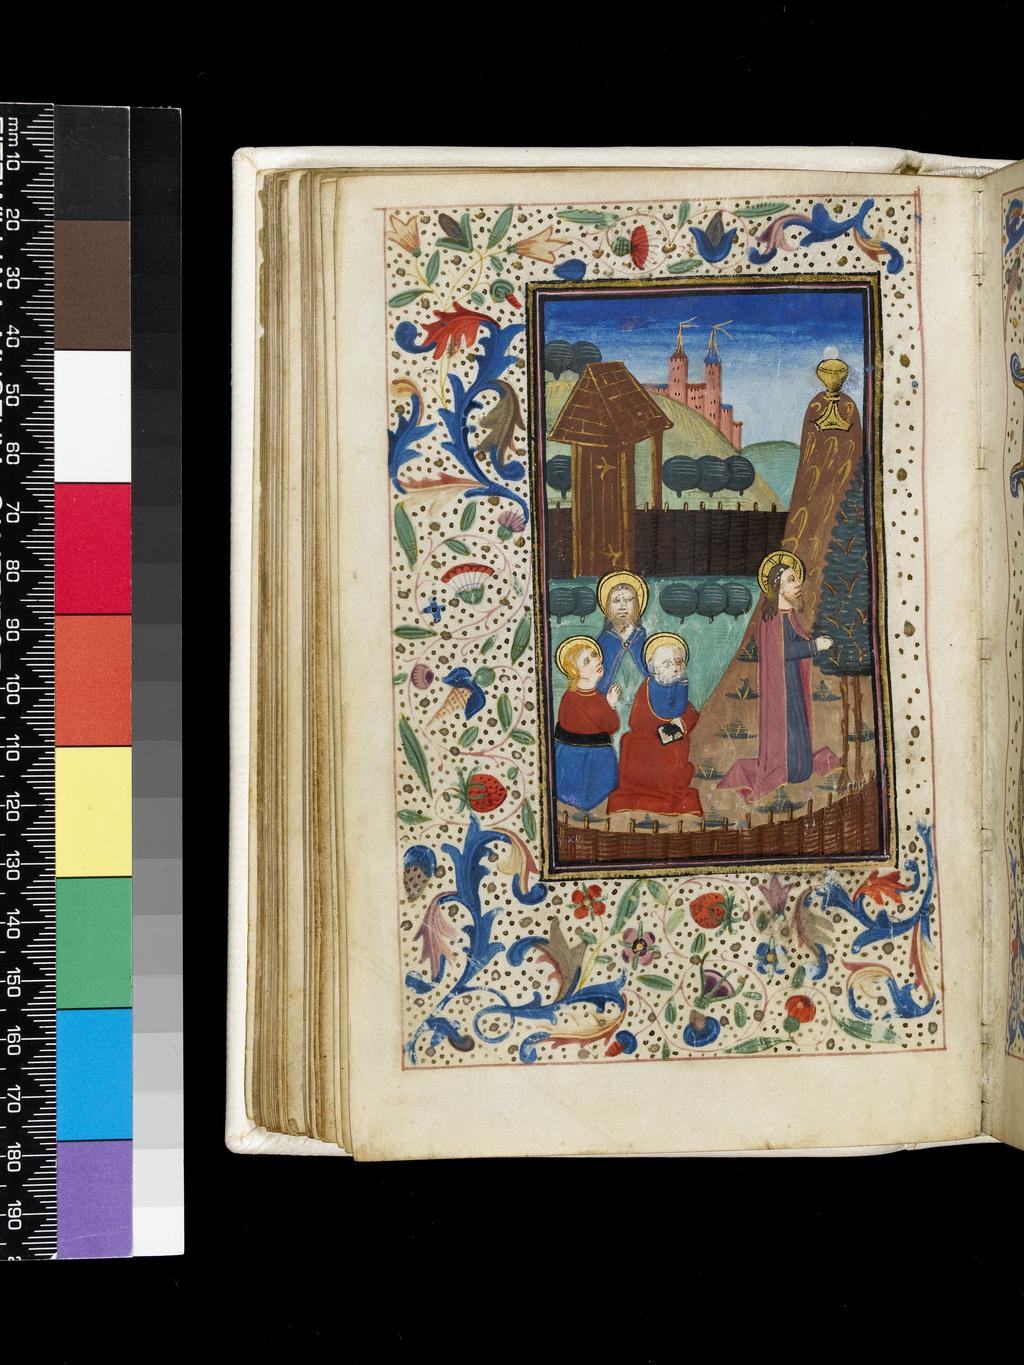 mm 10
20
30
40
50
60
70
80
90
100
110
120
130
140
150
160
170
180
190